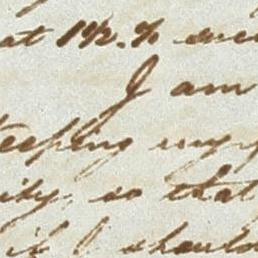 at 1½. %
I am
keeping my
ity, so that
if I should